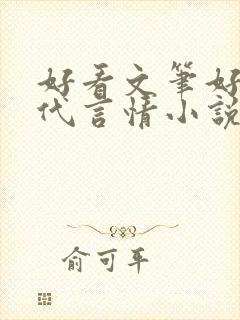 好看文筆好
代言情小說
俞可平